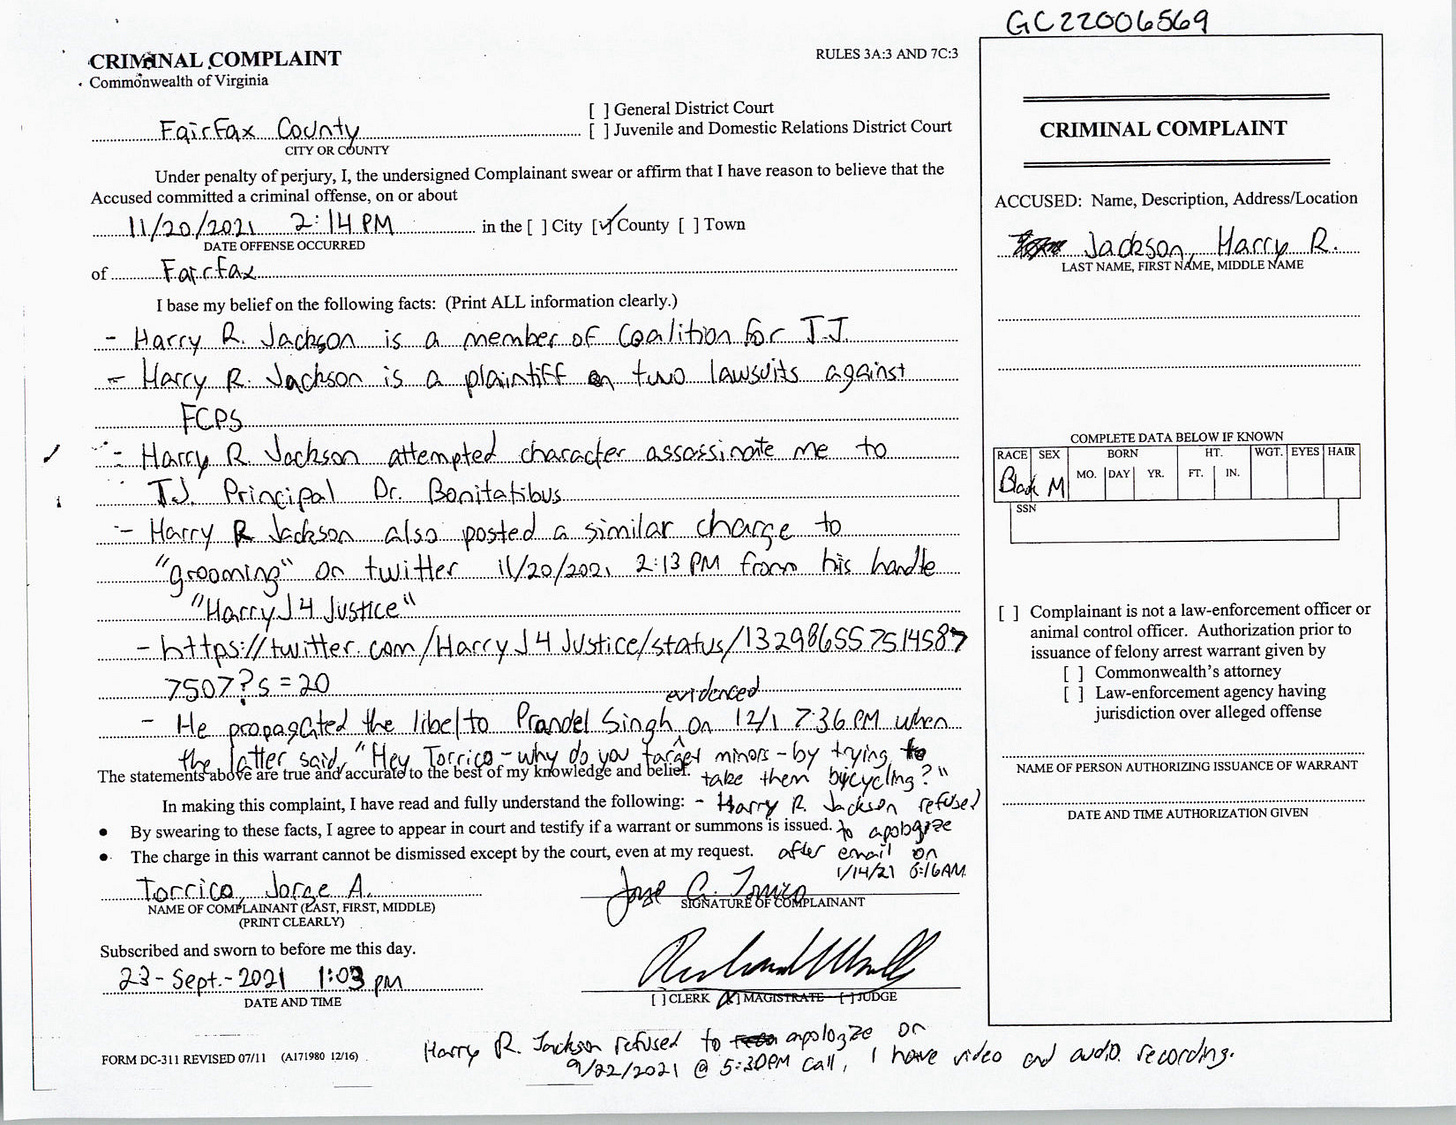 GC22006569
CRIMINAL COMPLAINT
Commonwealth of Virginia
RULES 3A:3 AND 7C:3
Fairfax County
CITY OR COUNTY
[ ] General District Court
[ ] Juvenile and Domestic Relations District Court
Under penalty of perjury, I, the undersigned Complainant swear or affirm that I have reason to believe that the
Accused committed a criminal offense, on or about
11/20/2021 2:14 PM in the [ ] City [✓] County [ ] Town
DATE OFFENSE OCCURRED
of Fairfax
I base my belief on the following facts: (Print ALL information clearly.)
- Harry R. Jackson is a member of Coalition for T.J.
- Harry R. Jackson is a plaintiff on two lawsuits against
FCPS
- Harry R Jackson attempted character assassinate me to
T.J. Principal Dr. Bonitatibus
- Harry R Jackson also posted a similar charge to
"grooming" on twitter 11/20/2021 2:13 PM from his handle
"HarryJ4Justice"
- https://twitter.com/HarryJ4Justice/status/13298655751458?
7507?s=20
- He propagated the libel to Prandel Singh evidenced on 12/1 7:36 PM when
the latter said, "Hey Torrico - why do you target minors - by trying to
take them bycycling?"
The statements above are true and accurate to the best of my knowledge and belief.
In making this complaint, I have read and fully understand the following:
- Harry R. Jackson refused
to apologize
after email on
1/14/21 6:16AM
• By swearing to these facts, I agree to appear in court and testify if a warrant or summons is issued.
• The charge in this warrant cannot be dismissed except by the court, even at my request.
Torrico, Jorge A.
NAME OF COMPLAINANT (LAST, FIRST, MIDDLE)
(PRINT CLEARLY)
SIGNATURE OF COMPLAINANT
Subscribed and sworn to before me this day.
23-Sept.-2021 1:03 PM
DATE AND TIME
[ ] CLERK [X] MAGISTRATE [ ] JUDGE
FORM DC-311 REVISED 07/11 (A171980 12/16)
Harry R. Jackson refused to apologize on
9/22/2021 @ 5:30PM call, I have video and audio recording.
CRIMINAL COMPLAINT
ACCUSED: Name, Description, Address/Location
Jackson, Harry R.
LAST NAME, FIRST NAME, MIDDLE NAME
COMPLETE DATA BELOW IF KNOWN
RACE SEX BORN HT. WGT. EYES HAIR
MO. DAY YR. FT. IN.
Black M
SSN
[ ] Complainant is not a law-enforcement officer or
animal control officer. Authorization prior to
issuance of felony arrest warrant given by
[ ] Commonwealth's attorney
[ ] Law-enforcement agency having
jurisdiction over alleged offense
NAME OF PERSON AUTHORIZING ISSUANCE OF WARRANT
DATE AND TIME AUTHORIZATION GIVEN